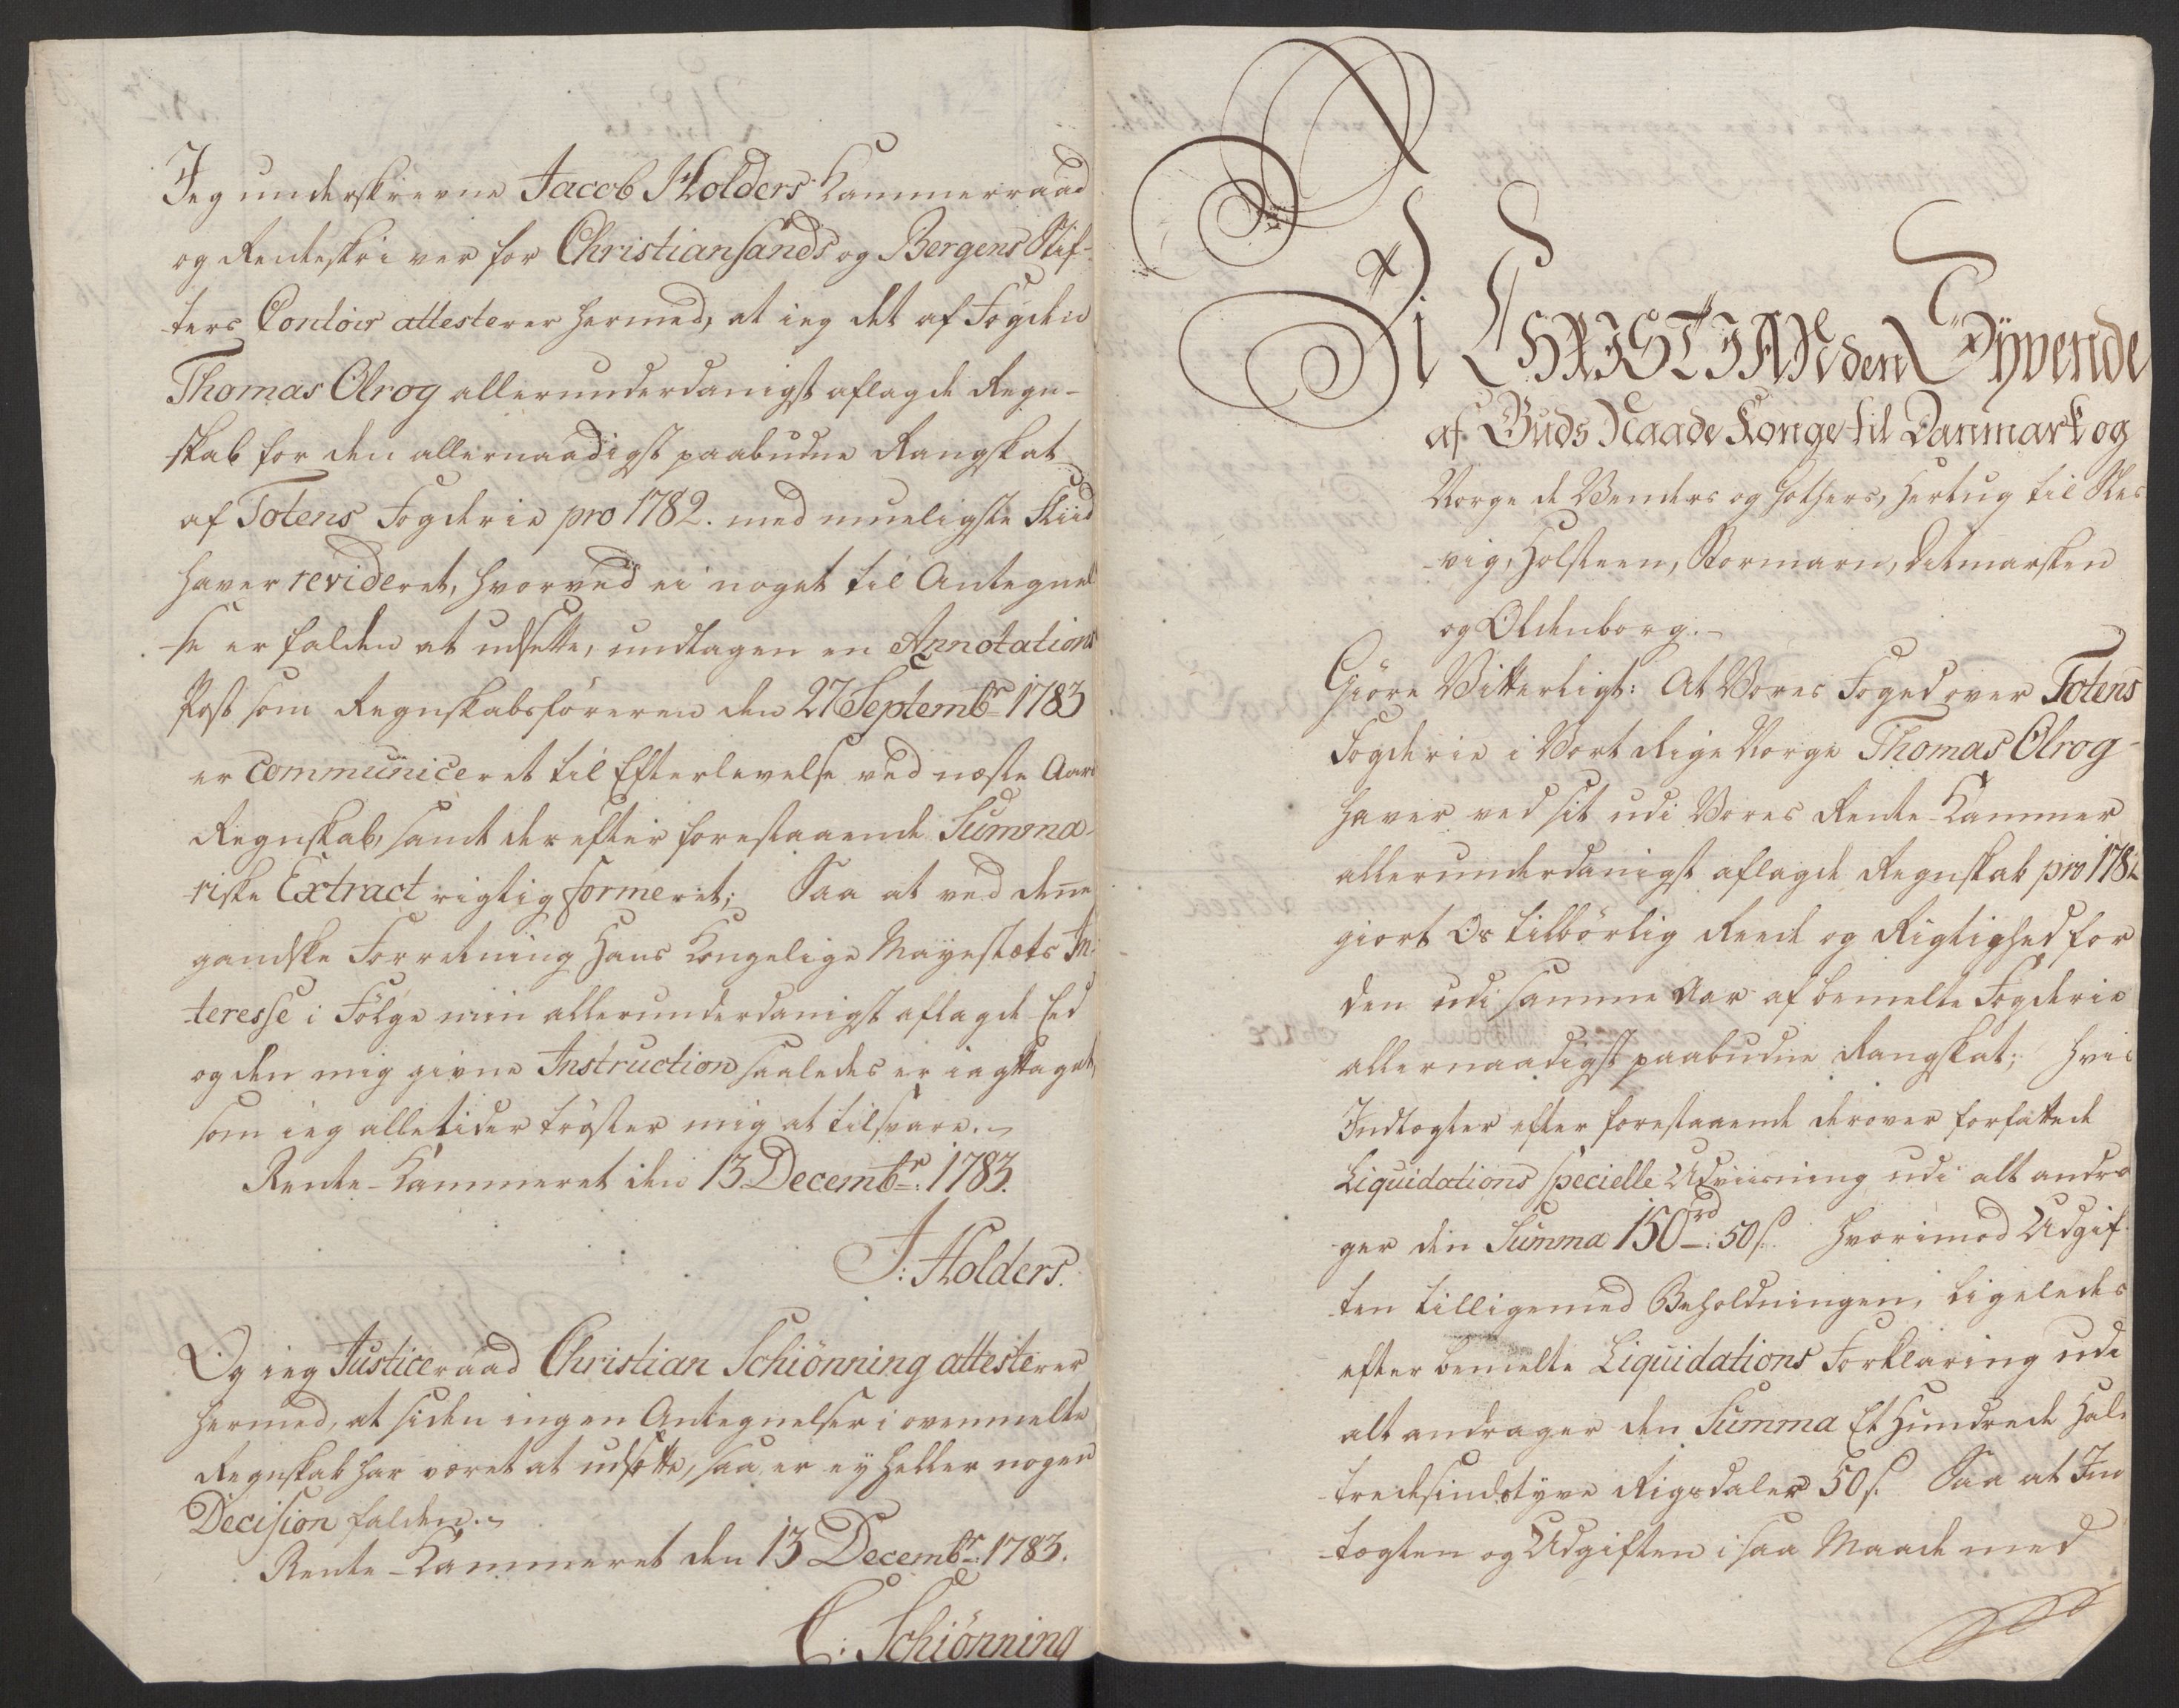 Jeg underskrevne Jacob Holders Kammerraad
og Renteskriver for Christiansands og Bergens Stif-
ters Contoir attesterer hermed, at ieg det af Fogden
Thomas Olrog allerunderdanigst aflagde Regn-
skab for den allernaadigst paabudne Rangskat
af Totens Fogderie pro 1782. med mueligste Fliid
haver revideret, hvorved ei noget til Antegnel
-se er falden at udsette, undtagen en Annotations
Post som Regnskabsföreren den 27 Septembr 1783
er communiceret til Efterlevelse ved næste Aars
Regnskab, samt derefter forestaaende Summa-
riske Extract rigtig formeret; Saa at ved denne
gandske Forretning Hans Kongelige Mayestæts In-
teresse i Fölge min allerunderdanigst aflagde Eed
og den mig givne Instruction saaledes er iagttaget,
som ieg alletider tröster mig at tilsvare.
Rente-Kammeret den 13 Decembr: 1783.
J: Holders.
Og ieg Justiceraad Christian Schiönning attesterer
hermed, at siden ingen Antegnelser i ovenmelte
Regnskab har været at udsætte, saa er ey heller nogen
Decision falden.
Rente-Kammeret den 13 Decembr: 1783.
C: Schiönning
Vi CHRISTIAN den Syvende
af Guds Naade Konge til Danmark og
Norge de Venders og Gothers, Hertug til Sles
-vig, Holsteen, Stormarn, Ditmarsken
og Oldenborg.
Giöre Vitterligt: At Vores Foged over Totens
Fogderie i Vort Rige Norge Thomas Olrog
haver ved sit udi Vores Rente-Kammer
allerunderdanigst aflagde Regnskab pro 1782
giort Os tilbörlig Reede og Rigtighed for
den udi samme Aar af bemelte Fogderie
allernaadigst paabudne Rangskat; Hvis
Indtægter efter forestaaende derover forfattede
Liquidations specielle Udviisning udi alt andra
-ger den Summa 150 rd: 50 s. Hvorimod Udgif
ten tilligemed Beholdningen, ligeledes
efter bemelte Liquidations Forklaring udi
alt andrager den Summa Et Hundrede Hal
-tredsindstyve Rigsdaler 50 s. Saa at Ind
-tægten og Udgiften i saa Maade med